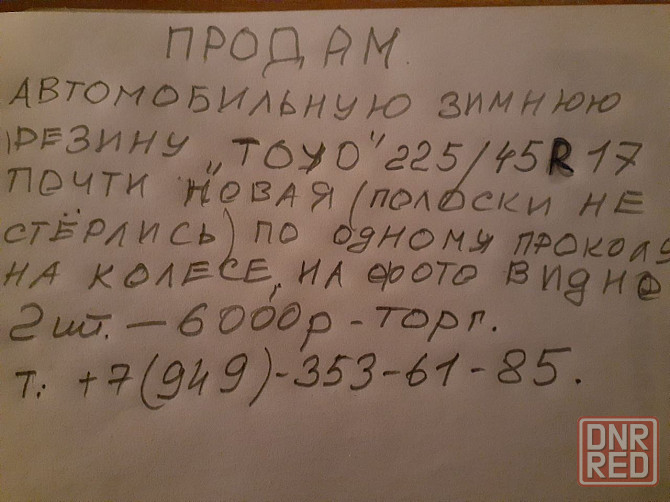 ПРОДАМ.
АВТОМОБИЛЬНУЮ ЗИМНЮЮ
РЕЗИНУ „ТОУО" 225/45R17
ПОЧТИ НОВАЯ (ПОЛОСКИ НЕ
СТЁРЛИСЬ) ПО ОДНОМУ ПРОКОЛУ
НА КОЛЕСЕ, НА ФОТО ВИДНО
2 шт. – 6000р – торг.
т: +7(949)-353-61-85.
DNR
RED